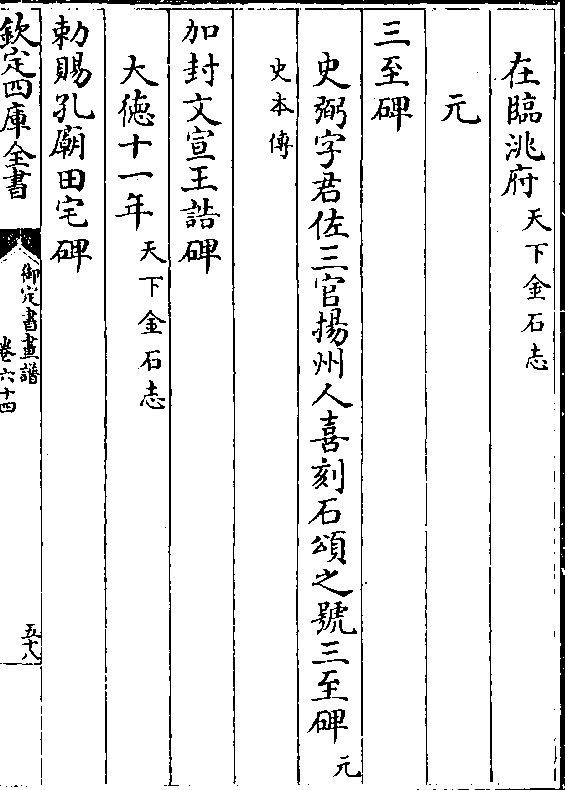 在臨洮府天下金石志
元
三至碑
史弼字君佐三官揚州人喜刻石頌之號三至碑元
史本傳
加封文宣王誥碑
大德十一年天下金石志
勅賜孔廟田宅碑
欽定四庫全書
御定書畫譜
卷六十四
五十八